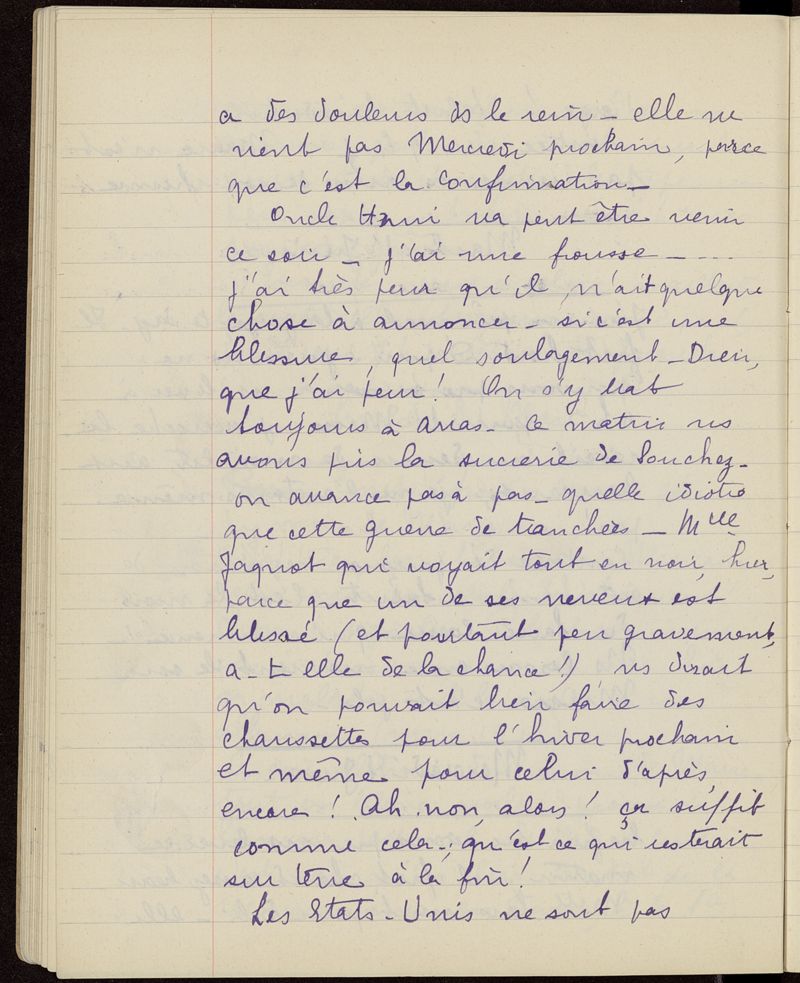 a des douleurs ds le rein _ elle ne
vient pas Mercredi prochain, parce
que c'est la Confirmation _
Oncle Henri va peut être venir
ce soir _ j'ai une frousse _ ...
j'ai très peur qu'il n'ait quelque
chose à annoncer _ si c'est une
blessure, quel soulagement _ Dieu,
que j'ai peur ! On s'y bat
toujours à Arras _ Ce matin ns
avons pris la sucrerie de Souchez _
on avance pas à pas _ quelle idiotie
que cette guerre de tranchées _ Mlle
Jaquot qui voyait tout en noir, hier,
parce que un de ses neveux est
blessé (et pourtant peu gravement,
a-t elle de la chance !) ns disait
qu'on pouvait bien faire des
chaussettes pour l'hiver prochain
et même pour celui d'après,
encore ! Ah non, alors ! ça suffit
comme cela _ ; qu'est ce qui resterait
sur terre à la fin !
Les Etats-Unis ne sont pas